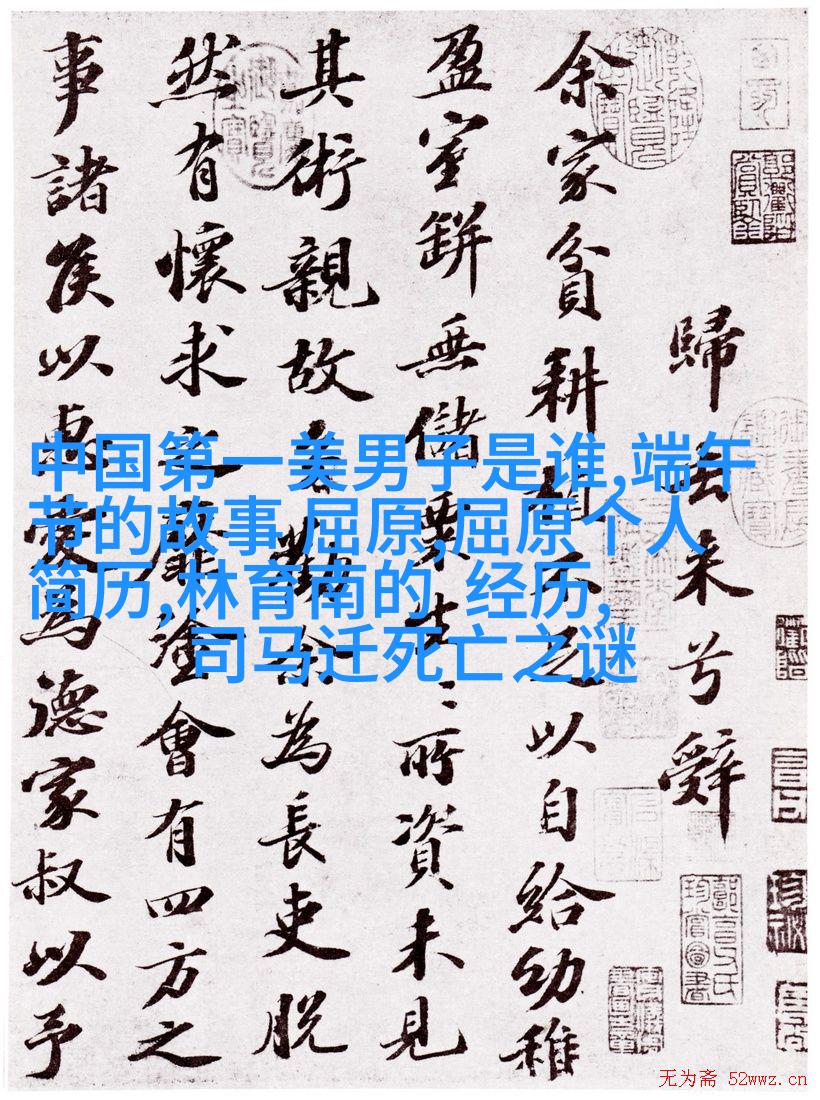 歸去来兮辤
余家貧耕植不足以自給幼稚
盈室缾無儲粟生〻所資未見
其術親故多勸余為長吏脫
然有懷求之靡塗會有四方之
事諸侯以惠愛為德家叔以予
中国第一美男子是谁,端午
节的故事 屈原,屈原个人
简历,林育南的 经历,
司马迁死亡之谜
无为斋 52wwz.cn